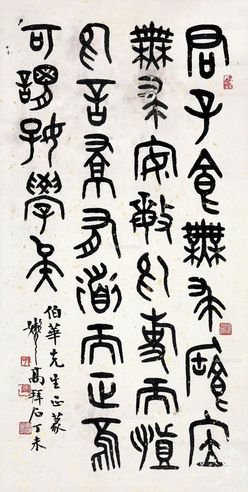 君子食無求飽居
無求安敏於事而慎
於言就有道而正焉
可謂好學矣
伯華先生正篆
高拜石丁未